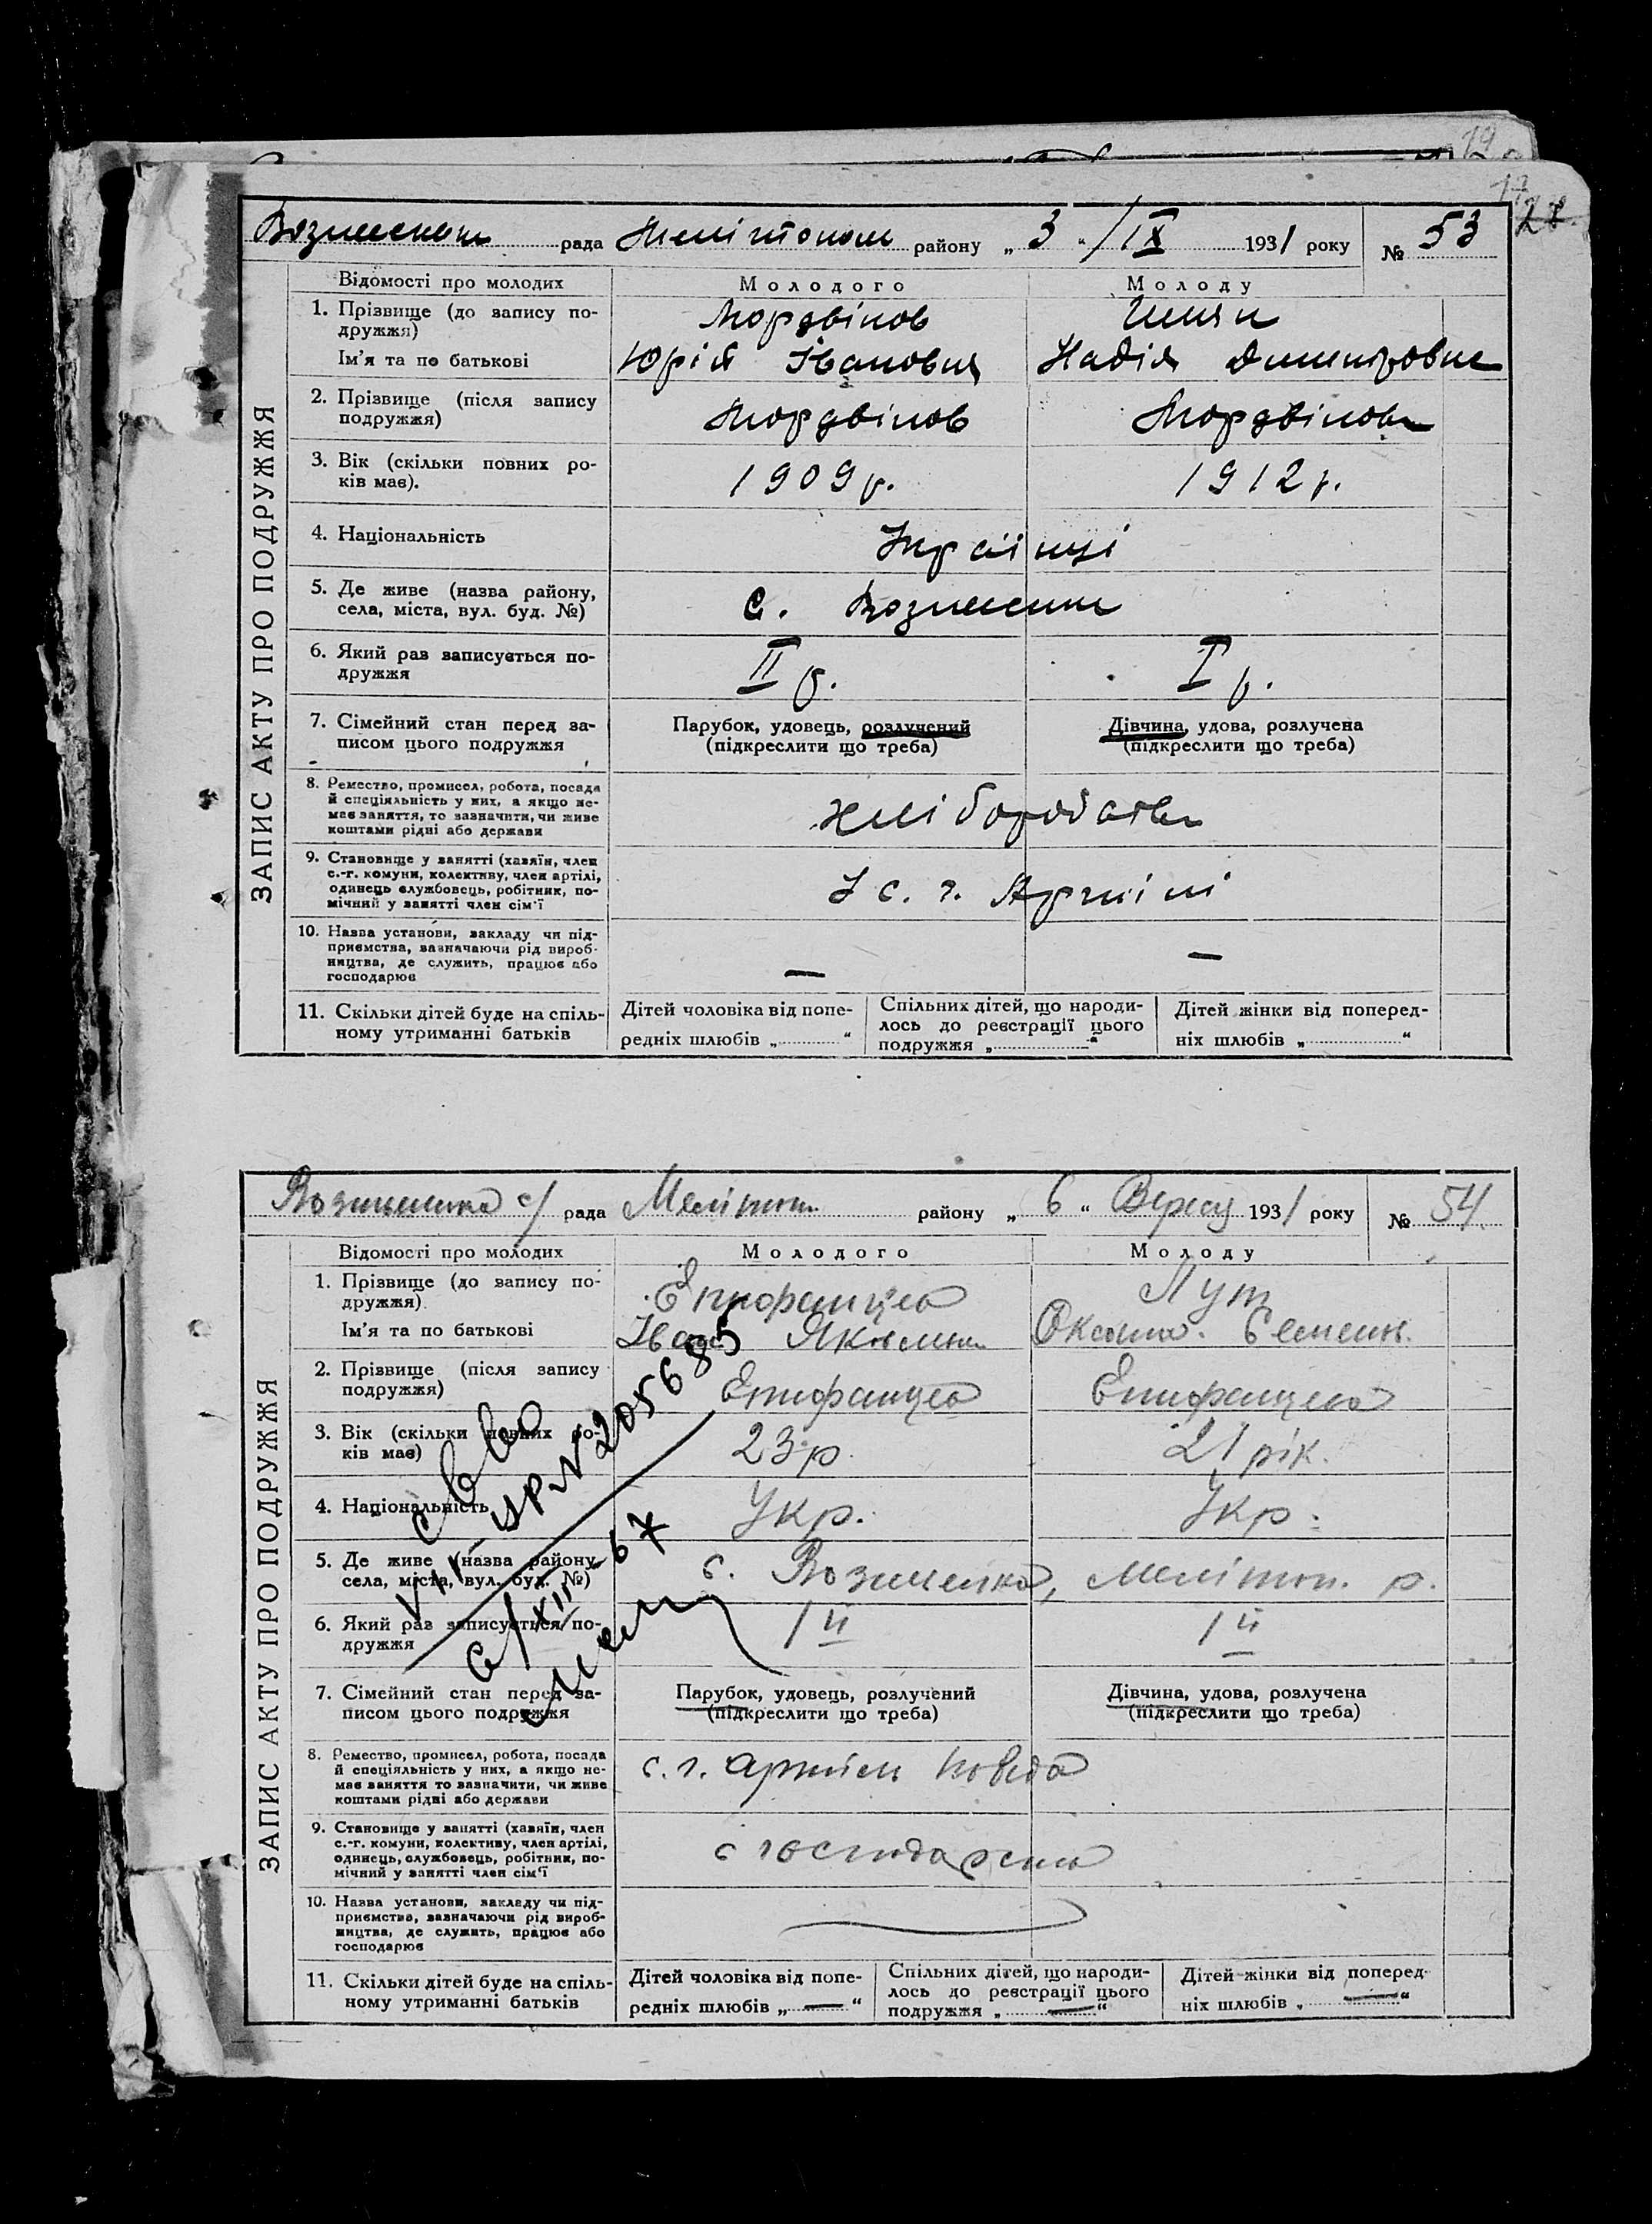 19
17
28.
Вознесенськ рада Мелітопол району „ 3 “ / IX 1931 року № 53
ЗАПИС АКТУ ПРО ПОДРУЖЖЯ
Відомості про молодих Молодого Молоду
1. Прізвище (до запису по-
дружжя) Мордвінов
Ім’я та по батькові Юрій Іванович Надія Дмитровна
2. Прізвище (після запису
подружжя) Мордвінов Мордвінова
3. Вік (скільки повних ро-
ків має). 1909 р. 1912 р.
4. Національність Українці
5. Де живе (назва району,
села, міста, вул. буд. №) с. Вознесенка
6. Який раз записується по-
дружжя II р. I р.
7. Сімейний стан перед за-
писом цього подружжя
Парубок, удовець, розлучений Дівчина, удова, розлучена
(підкреслити що треба) (підкреслити що треба)
8. Ремество, промисел, робота, посада
й спеціяльність у них, а якщо не-
має заняття, то зазначити, чи живе
коштами рідні або держави
хліборобство
9. Становище у занятті (хазяїн, член
с.-г. комуни, колективу, член артілі,
одинець службовець, робітник, по-
мічний у занятті член сім’ї
У с. г. Артілі
10. Назва установи, закладу чи під-
приємства, зазначаючи рід вироб-
ництва, де служить, працює або
господарює
— —
11. Скільки дітей буде на спіль-
ному утриманні батьків
Дітей чоловіка від попе-
редніх шлюбів „ “
Спільних дітей, що народи-
лось до реєстрації цього
подружжя „ “
Дітей жінки від поперед-
ніх шлюбів „ “
Вознесенка с/ рада Мелітоп. району „ 6 “ Вересня 1931 року № 54
ЗАПИС АКТУ ПРО ПОДРУЖЖЯ
Відомості про молодих Молодого Молоду
1. Прізвище (до запису по-
дружжя) Епифанцев Лут
Ім’я та по батькові Іван Яковлев. Оксана Семенів.
2. Прізвище (після запису
подружжя) Епифанцев Епифанцева
3. Вік (скільки повних ро-
ків має) 23 р. 21 рік.
4. Національність Укр. Укр.
5. Де живе (назва району,
села, міста, вул. буд. №) с. Вознесенка, Мелітоп. р.
6. Який раз записується по-
дружжя 1й 1й
7. Сімейний стан перед за-
писом цього подружжя
Парубок, удовець, розлучений Дівчина, удова, розлучена
(підкреслити що треба) (підкреслити що треба)
8. Ремество, промисел, робота, посада
й спеціяльність у них, а якщо не-
має заняття то зазначити, чи живе
коштами рідні або держави
с. г. артіль Победа
9. Становище у занятті (хазяїн, член
с.-г. комуни, колективу, член артілі,
одинець, службовець, робітник, по-
мічний у занятті член сім’ї
с господарства
10. Назва установи, закладу чи під-
приємства, зазначаючи рід вироб-
ництва, де служить, працює або
господарює
11. Скільки дітей буде на спіль-
ному утриманні батьків
Дітей чоловіка від попе-
редніх шлюбів „ — “
Спільних дітей, що народи-
лось до реєстрації цього
подружжя „ — “
Дітей жінки від поперед-
ніх шлюбів „ — “
с-во
VII-ЯР № 205685
6/XII-67